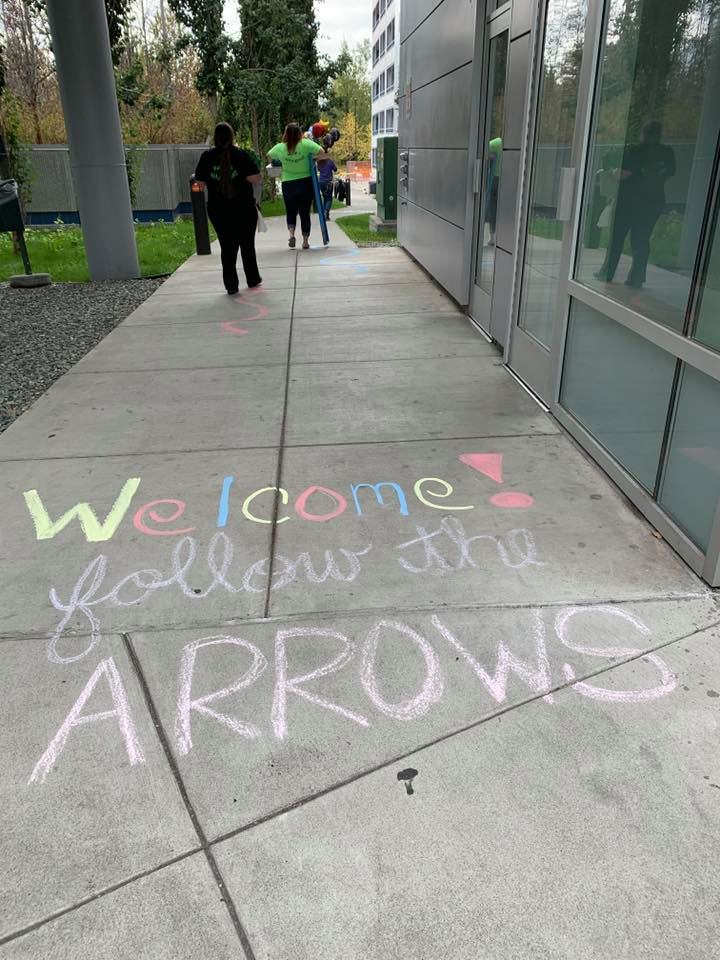 Welcome!
follow the
ARROWS